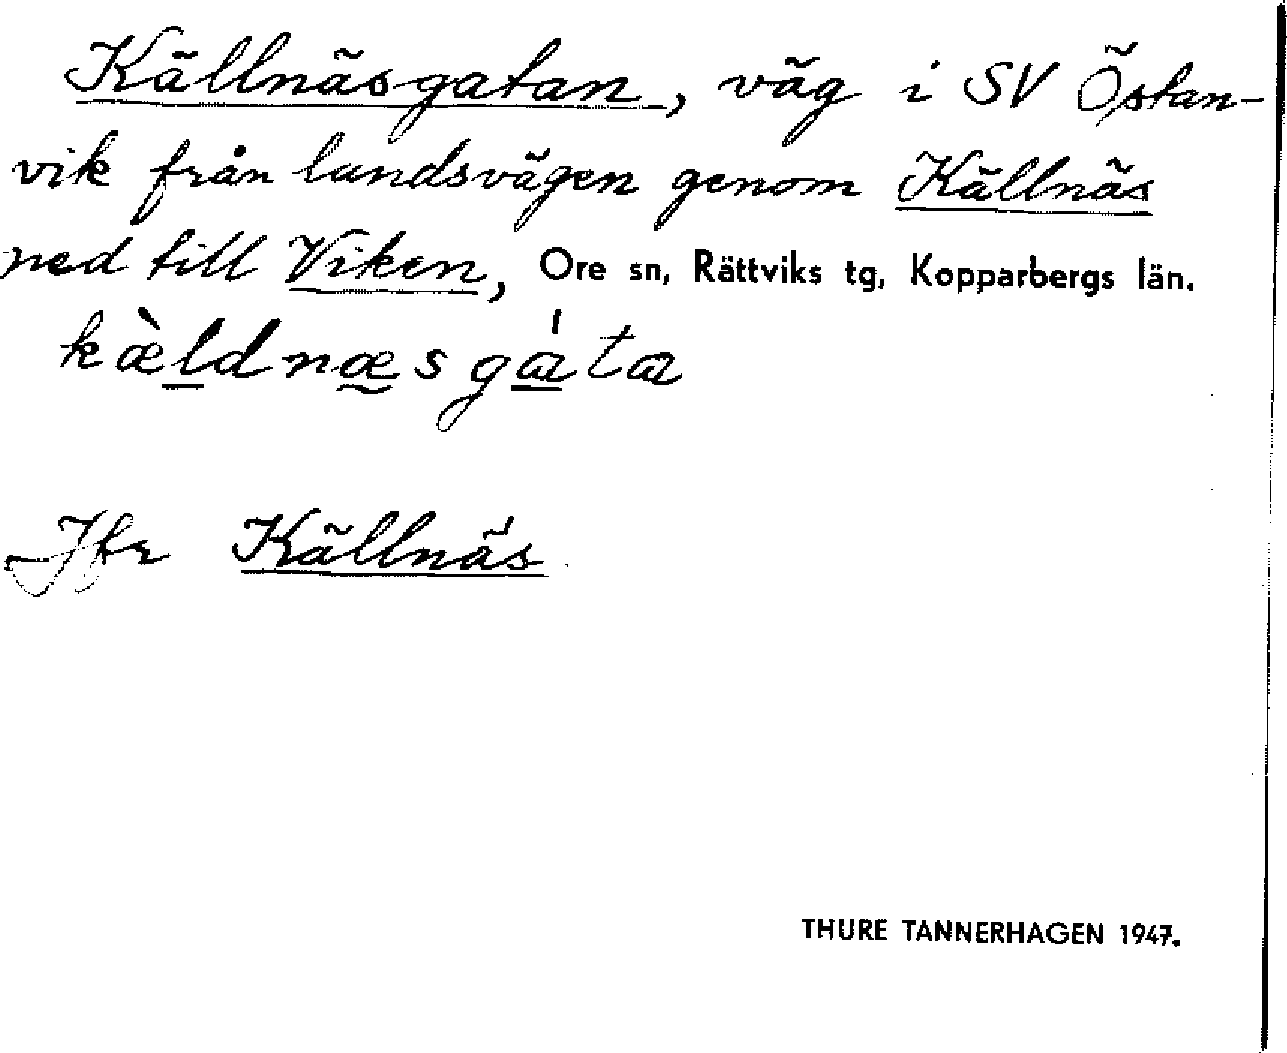 Källnäsgatan, väg i SV Östan-
vik från landsvägen genom Källnäs
ned till Viken, Ore sn, Rättviks tg, Kopparbergs län.
kæ̀ldnæsgáta
Jfr Källnäs
THURE TANNERHAGEN 1947.